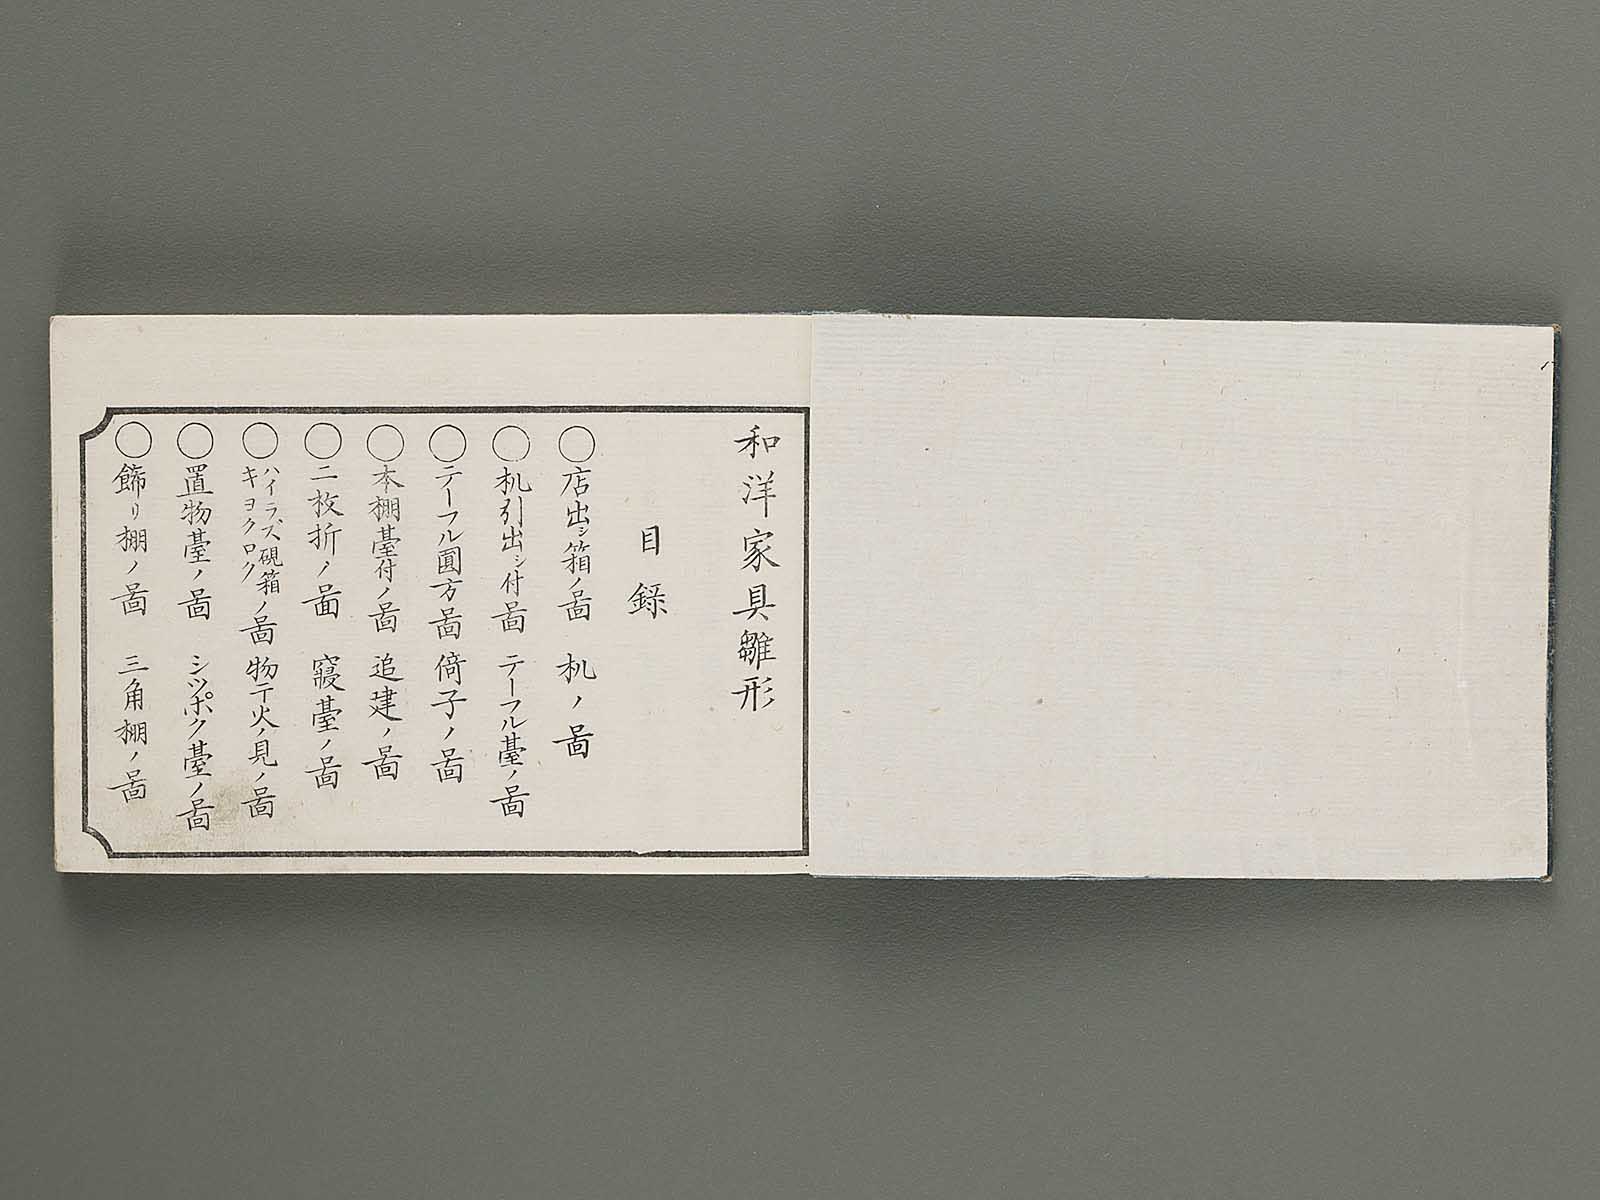 和洋家具雛形
目錄
◯店出シ箱ノ啚 机ノ啚
◯机引出シ付啚 テーフル臺ノ啚
◯テーフル圓方啚 倚子ノ啚
◯本棚臺付ノ啚 追建ノ啚
◯二枚折ノ啚 寢臺ノ啚
◯ハイラズ硯箱キヨクロクノ啚 物干火ノ見ノ啚
◯置物臺ノ啚 シツポク臺ノ啚
◯餝リ棚ノ啚 三角棚ノ啚